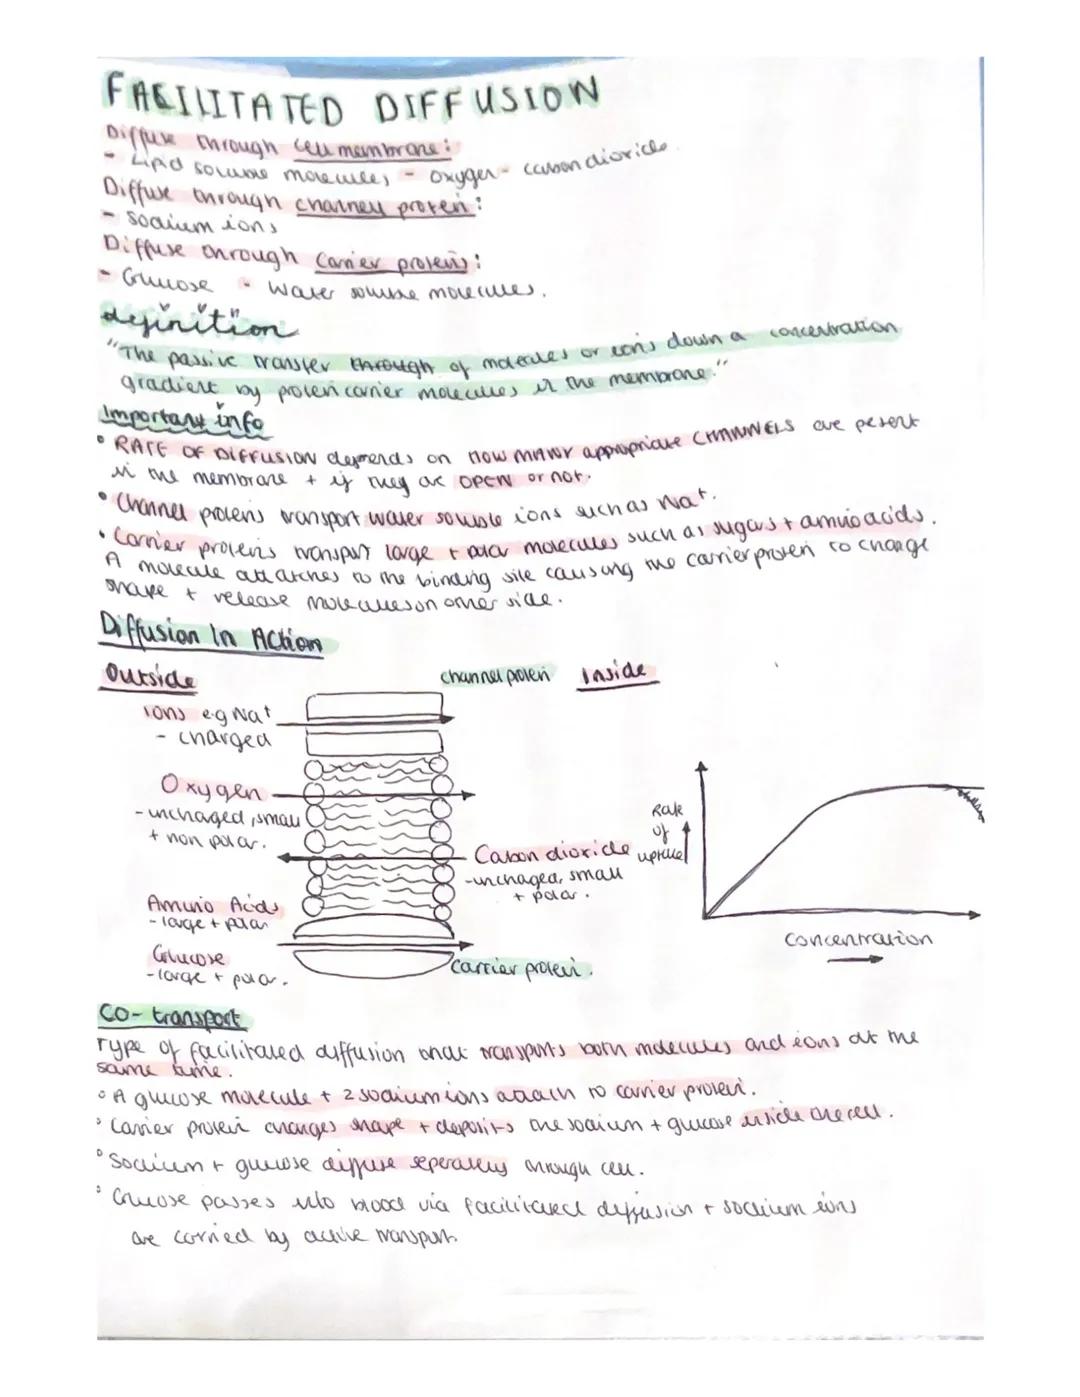 FACILITATED DIFFUSION
Diffuse through cell membrane:
- Lipid soluble molecules - oxygen - carbon dioxide.
Diffuse through channel protein:
- Sodium ions
Diffuse through carrier proteins:
- Glucose - water soluble molecules.
definition
"The passive transfer through of molecules or ions down a concentration
gradient by protein carrier molecules in the membrane."
Important info
• RATE OF DIFFUSION depends on HOW MANY appropriate CHANNELS are pesent
in the membrane + if they are OPEN or not.
• Channel proteins transport water soluble ions such as Na+.
• Carrier proteins transport large + polar molecules such as sugars + amino acids.
A molecule attatches to the binding site causing the carrier protein to change
shape + release molecules on other side.
Diffusion In Action
Outside channel protein Inside
ions e.g Na+
- charged
Oxygen
- unchaged, small
+ non polar.
Rate
of
uptake
Cabon dioxide
- unchaged, small
+ polar.
Amino Acids
- large + polar
Concentration
Glucose
- large + polar.
Carrier protein.
CO-transport
Type of facilitated diffusion that transports both molecules and ions at the
same time.
• A glucose molecule + 2 sodium ions attach to carrier protein.
• Carrier protein changes shape + deposits the sodium + glucose inside the cell.
• Sodium + glucose diffuse seperately through cell.
• Glucose passes into blood via facilitated diffusion + sodium ions
are carried by active transport.